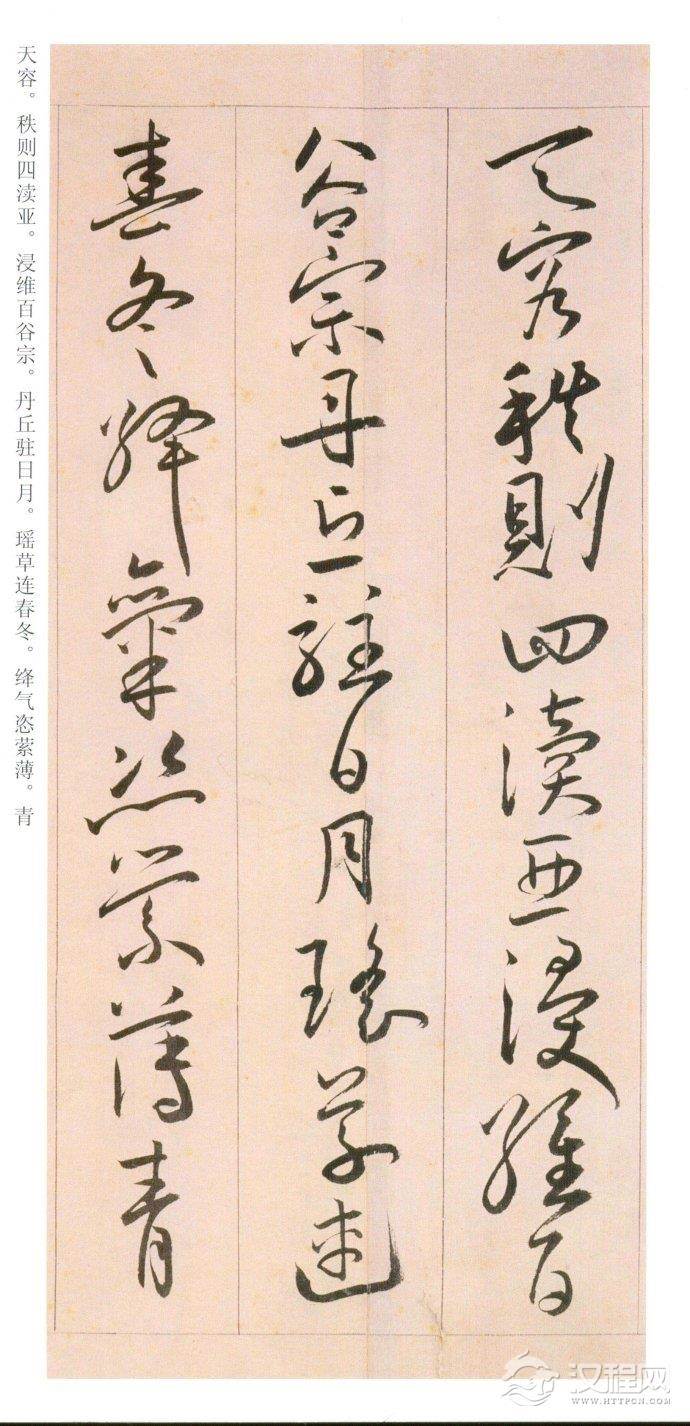 天容秩則四瀆亞浸維百
谷宗丹丘駐日月瑤草連
春冬絳氣恣縈薄青
天容。秩则四渎亚。浸维百谷宗。丹丘驻日月。瑶草连春冬。绛气恣萦薄。青
汉程网
WWW.HTTPCN.COM